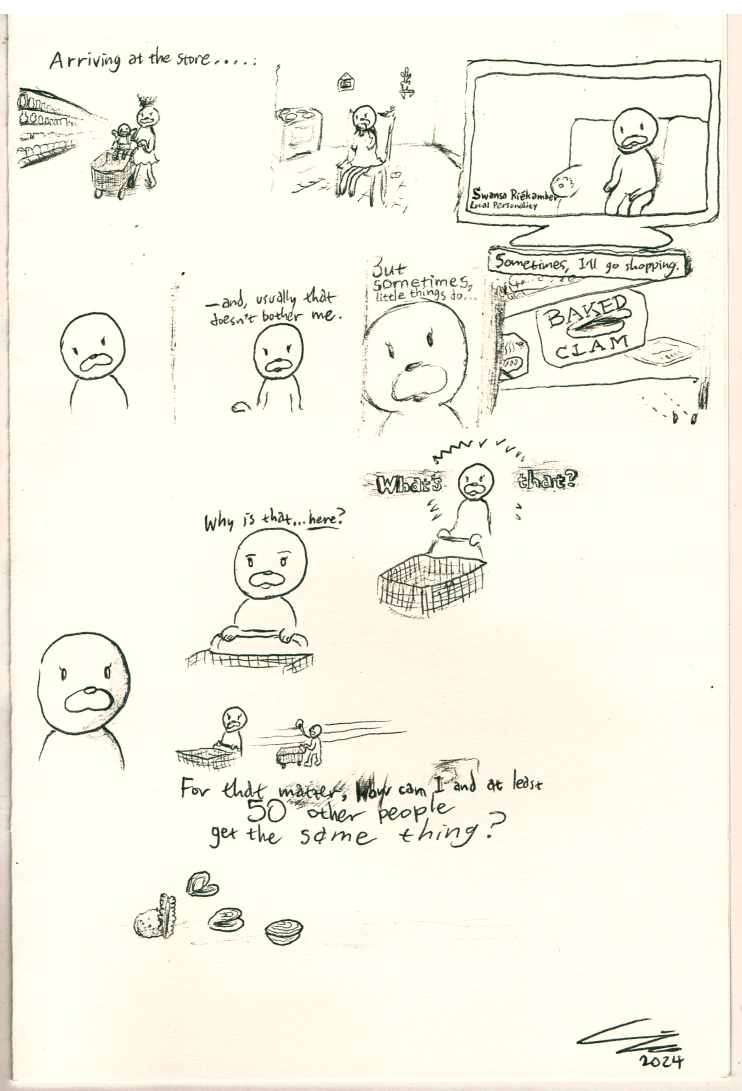 Arriving at the store.....
Swansa
Local Personality
—and, usually that
doesn't bother me.
But
sometimes,
little things do...
Sometimes, I'll go shopping.
BAKED
CLAM
What's that?
Why is that...here?
For that matter, How can I and at least
50 other people
get the same thing?
2024